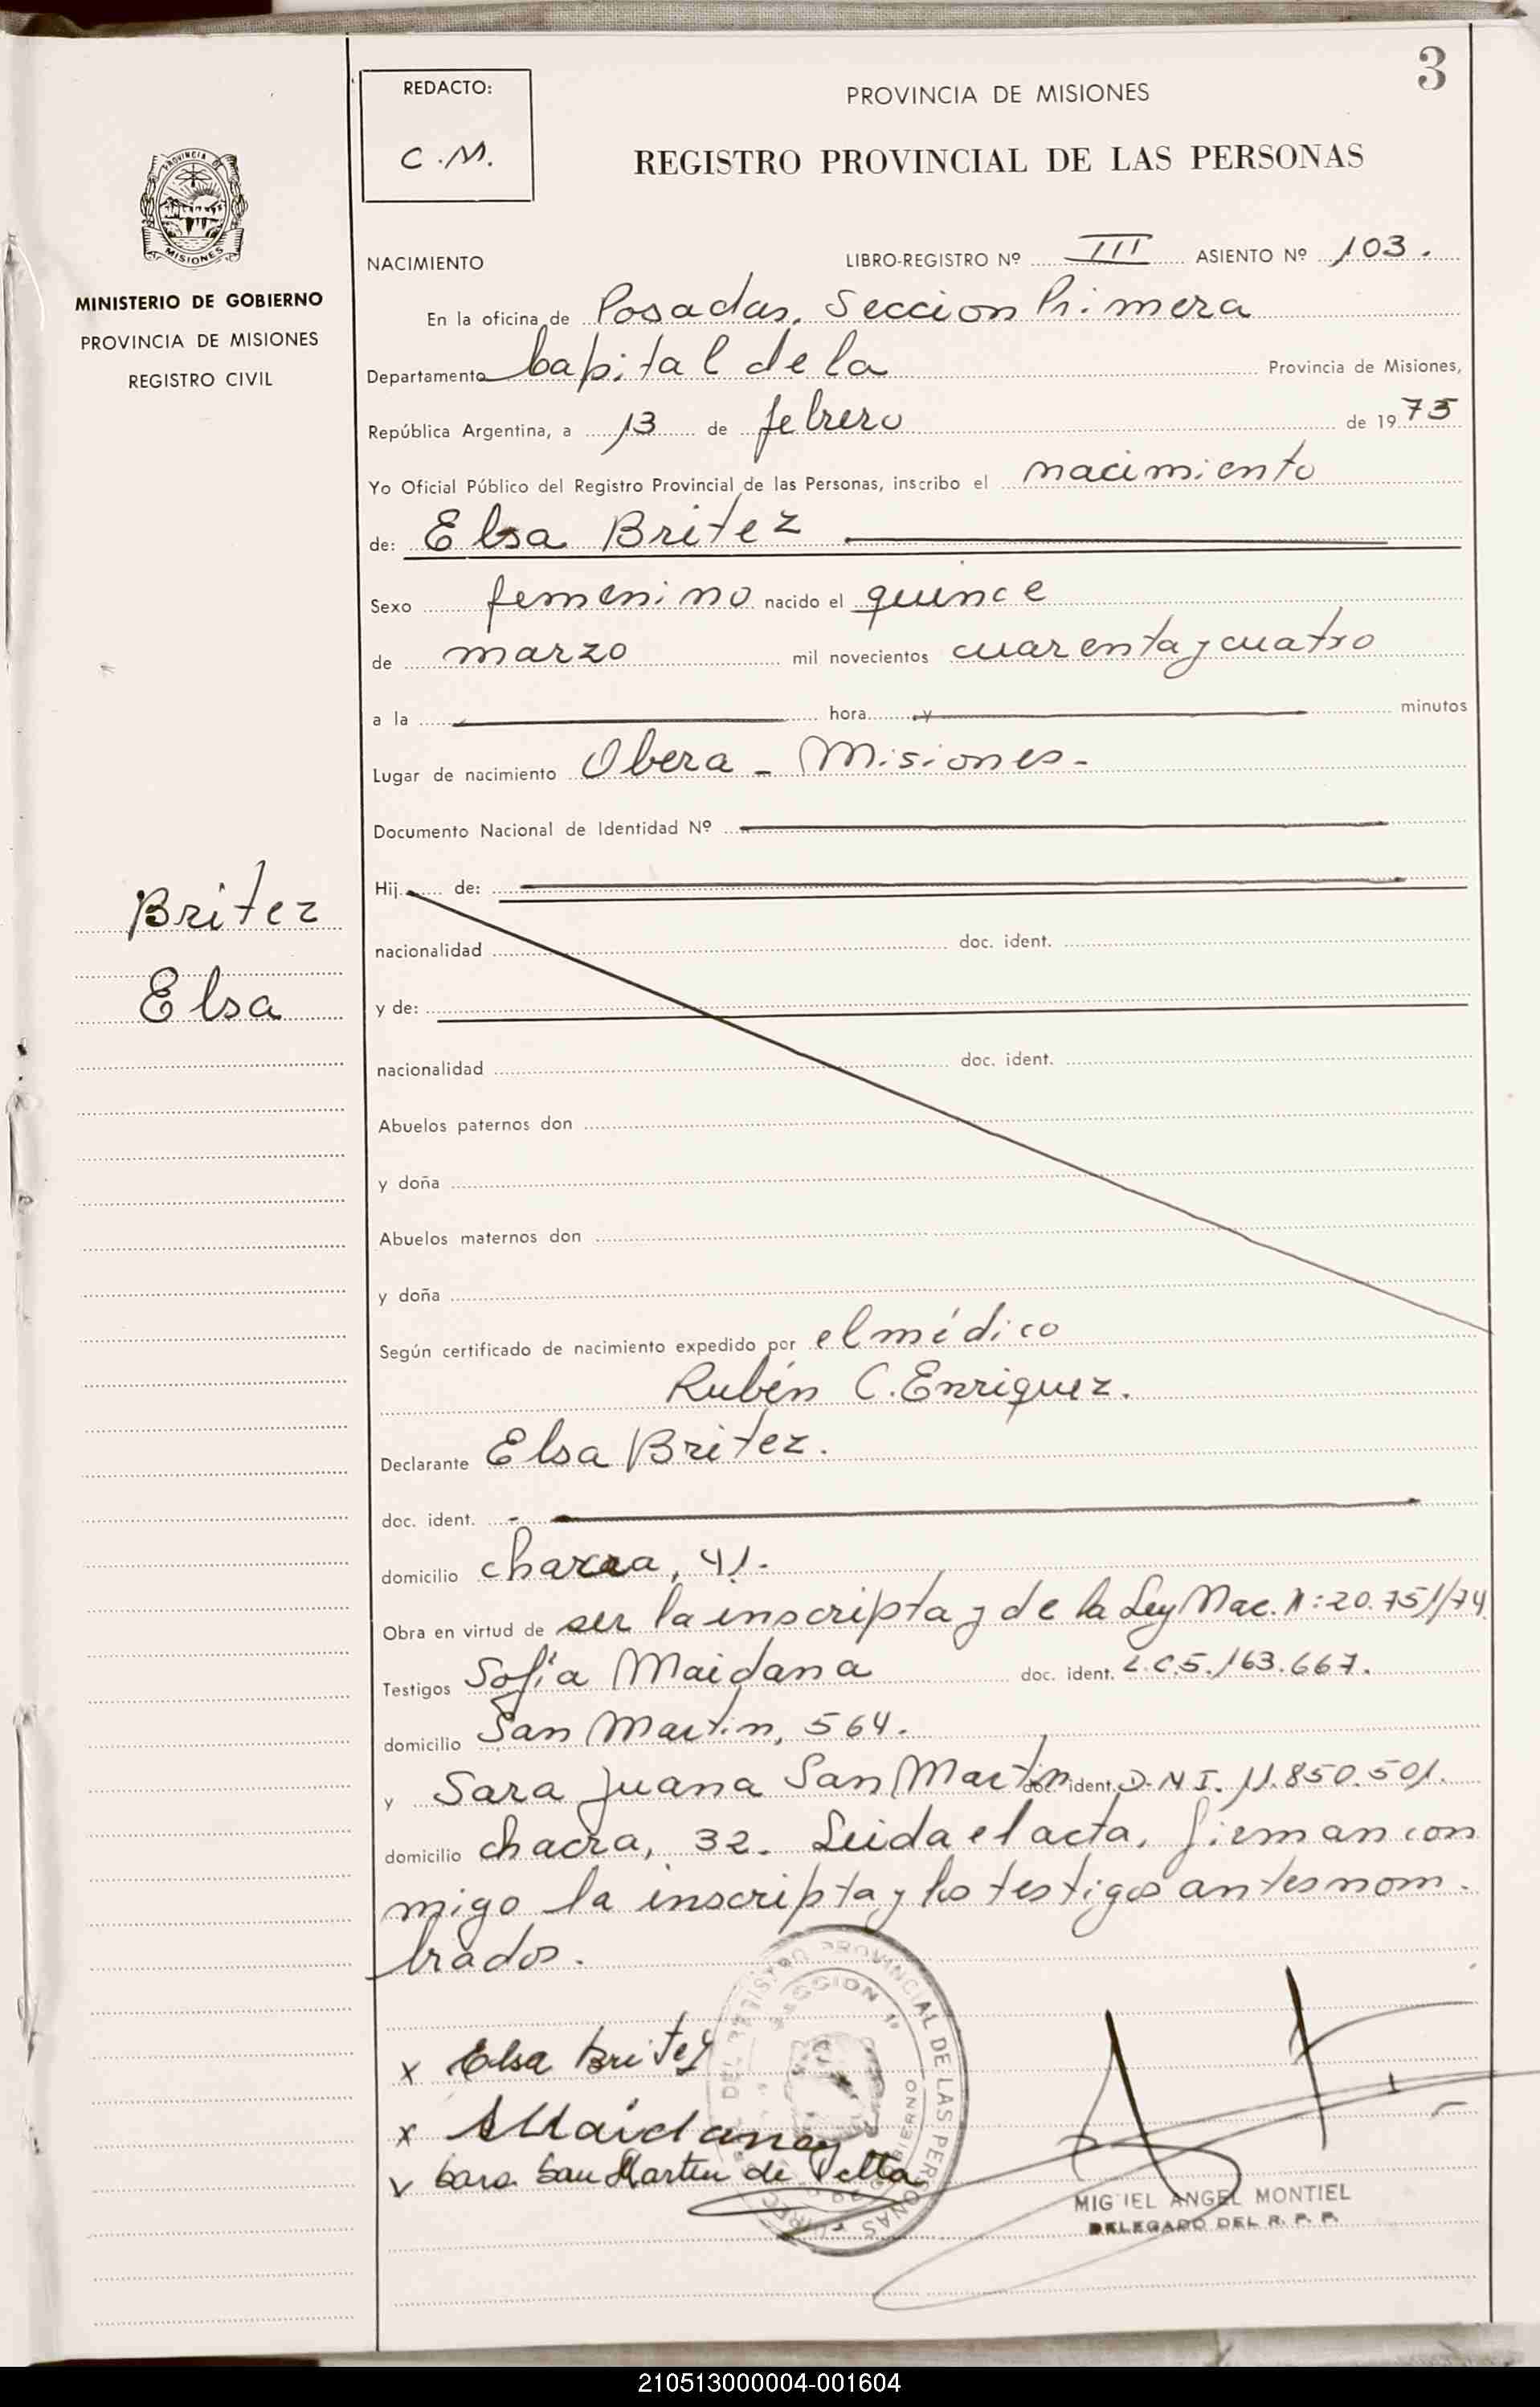 3
REDACTO:
C.M.
PROVINCIA DE MISIONES
REGISTRO PROVINCIAL DE LAS PERSONAS
PROVINCIA DE
MISIONES
MINISTERIO DE GOBIERNO
PROVINCIA DE MISIONES
REGISTRO CIVIL
NACIMIENTO LIBRO-REGISTRO Nº III ASIENTO Nº 103.
En la oficina de Posadas, Seccion Primera
Departamento Capital de la Provincia de Misiones,
República Argentina, a 13 de febrero de 1975
Yo Oficial Público del Registro Provincial de las Personas, inscribo el nacimiento
de: Elsa Britez
Sexo femenino nacido el quince
de marzo mil novecientos cuarenta y cuatro
a la hora y minutos
Lugar de nacimiento Obera - Misiones-
Documento Nacional de Identidad Nº
Hij de:
Britez
Elsa
nacionalidad doc. ident.
y de:
nacionalidad doc. ident.
Abuelos paternos don
y doña
Abuelos maternos don
y doña
Según certificado de nacimiento expedido por el médico
Rubén C. Enriquez.
Declarante Elsa Britez.
doc. ident. -
domicilio chacra, 41.
Obra en virtud de ser la inscripta y de la Ley Nac. N:20.751/74
Testigos Sofía Maidana doc. ident. L.C.5.163.667.
domicilio San Martin, 564.
y Sara Juana San Martín doc. ident. D.N.I. 11.850.501.
domicilio chacra, 32. Leida el acta, firman con
migo la inscripta y los testigos antes nom-
brados.
x Elsa Britez
x SMaidana
v Sara San Martin de
REGISTRO PROVINCIAL DE LAS PERSONAS
SECCION 1ª
MIGUEL ANGEL MONTIEL
DELEGADO DEL R. P. P.
210513000004-001604